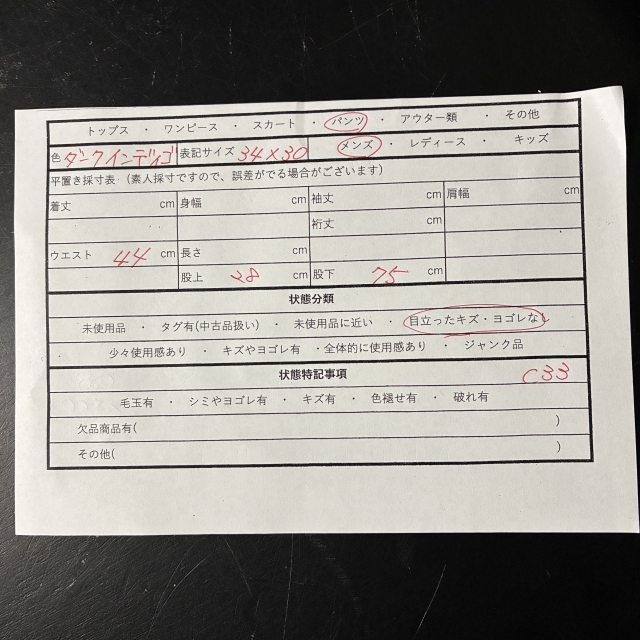 トップス ・ ワンピース ・ スカート ・ パンツ ・ アウター類 ・ その他
色 ダークインディゴ 表記サイズ 34×30 メンズ ・ レディース ・ キッズ
平置き採寸表 (素人採寸ですので、誤差がでる場合がございます)
着丈 cm 身幅 cm 袖丈 cm 肩幅 cm
裄丈 cm
ウエスト 44 cm 長さ
股上 28 cm 股下 75 cm
状態分類
未使用品 ・ タグ有(中古品扱い) ・ 未使用品に近い ・ 目立ったキズ・ヨゴレなし
・ 少々使用感あり ・ キズやヨゴレ有 ・全体的に使用感あり ・ ジャンク品
状態特記事項 C33
毛玉有 ・ シミやヨゴレ有 ・ キズ有 ・ 色褪せ有 ・ 破れ有
欠品商品有( )
その他( )